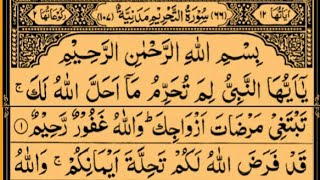 اٰيَاتُهَا ١٢ (٦٦) سُوْرَةُ التَّحْرِيْمِ مَدَنِيَّةٌ (١٠٧) رُكُوْعَاتُهَا ٢
بِسْمِ اللّٰهِ الرَّحْمٰنِ الرَّحِيْمِ
يٰۤاَيُّهَا النَّبِيُّ لِمَ تُحَرِّمُ مَاۤ اَحَلَّ اللّٰهُ لَكَ ۚ
تَبْتَغِيْ مَرْضَاتَ اَزْوَاجِكَ ؕ وَاللّٰهُ غَفُوْرٌ رَّحِيْمٌ ۝١
قَدْ فَرَضَ اللّٰهُ لَكُمْ تَحِلَّةَ اَيْمَانِكُمْ ۚ وَاللّٰهُ